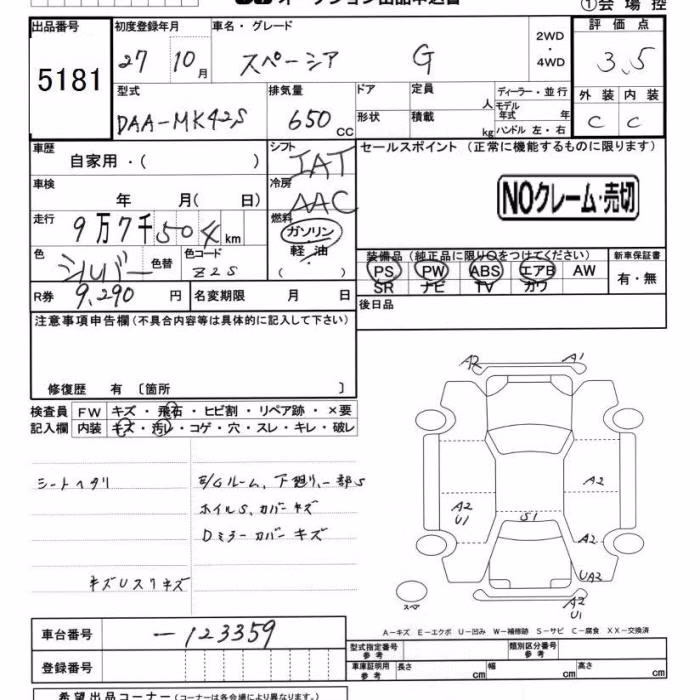 オークション出品申込書
①会場控
出品番号 初度登録年月 車名・グレード 評価点
5181 27 10月 スペーシア G 2WD・4WD 3.5
型式 排気量 ドア 定員 人 ディーラー・並行 外装 内装
DAA-MK42S 650 CC 形状 積載 kg モデル年式 年 ハンドル 左・右 C C
車歴 自家用・( ) シフト IAT セールスポイント (正常に機能するものに限ります)
車検 年 月( 日) 冷房 AAC NOクレーム・売切
走行 9万7千504km 燃料 ガソリン 軽・油 ( )
色 シルバー 色替 色コード Z2S 装備品(純正品に限り○をつけてください) 新車保証書
PS PW ABS エアB AW 有・無
SR ナビ TV カワ
R券 9,290 円 名変期限 月 日 後日品
注意事項申告欄(不具合内容等は具体的に記入して下さい)
修復歴 有 〔箇所 〕
検査員 FW キズ・飛石・ヒビ割・リペア跡・×要
記入欄 内装 キズ・汚レ・コゲ・穴・スレ・キレ・破レ
シートヘタリ E/Gルーム、下廻り、一部S
ホイルS、カバーキズ
Dミラーカバーキズ
キズUスリキズ
A2 A1
A2
A2
U1
S1
A2
UA2
スペア
A2
U1
A-キズ E-エクボ U-凹み W-補修跡 S-サビ C-腐食 XX-交換済
車台番号 -123359
登録番号
型式指定番号 参考 類別区分番号 参考
車庫証明用 参考 長さ cm 幅 cm 高さ cm
希望出品コーナー(コーナーは各会場により異なります。)